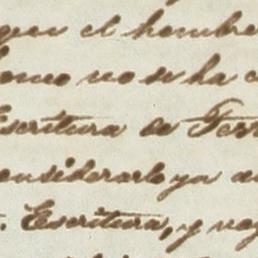 que el hombre
como no se ha
Escritura de Terr
considerarlo ya
Escritura, y